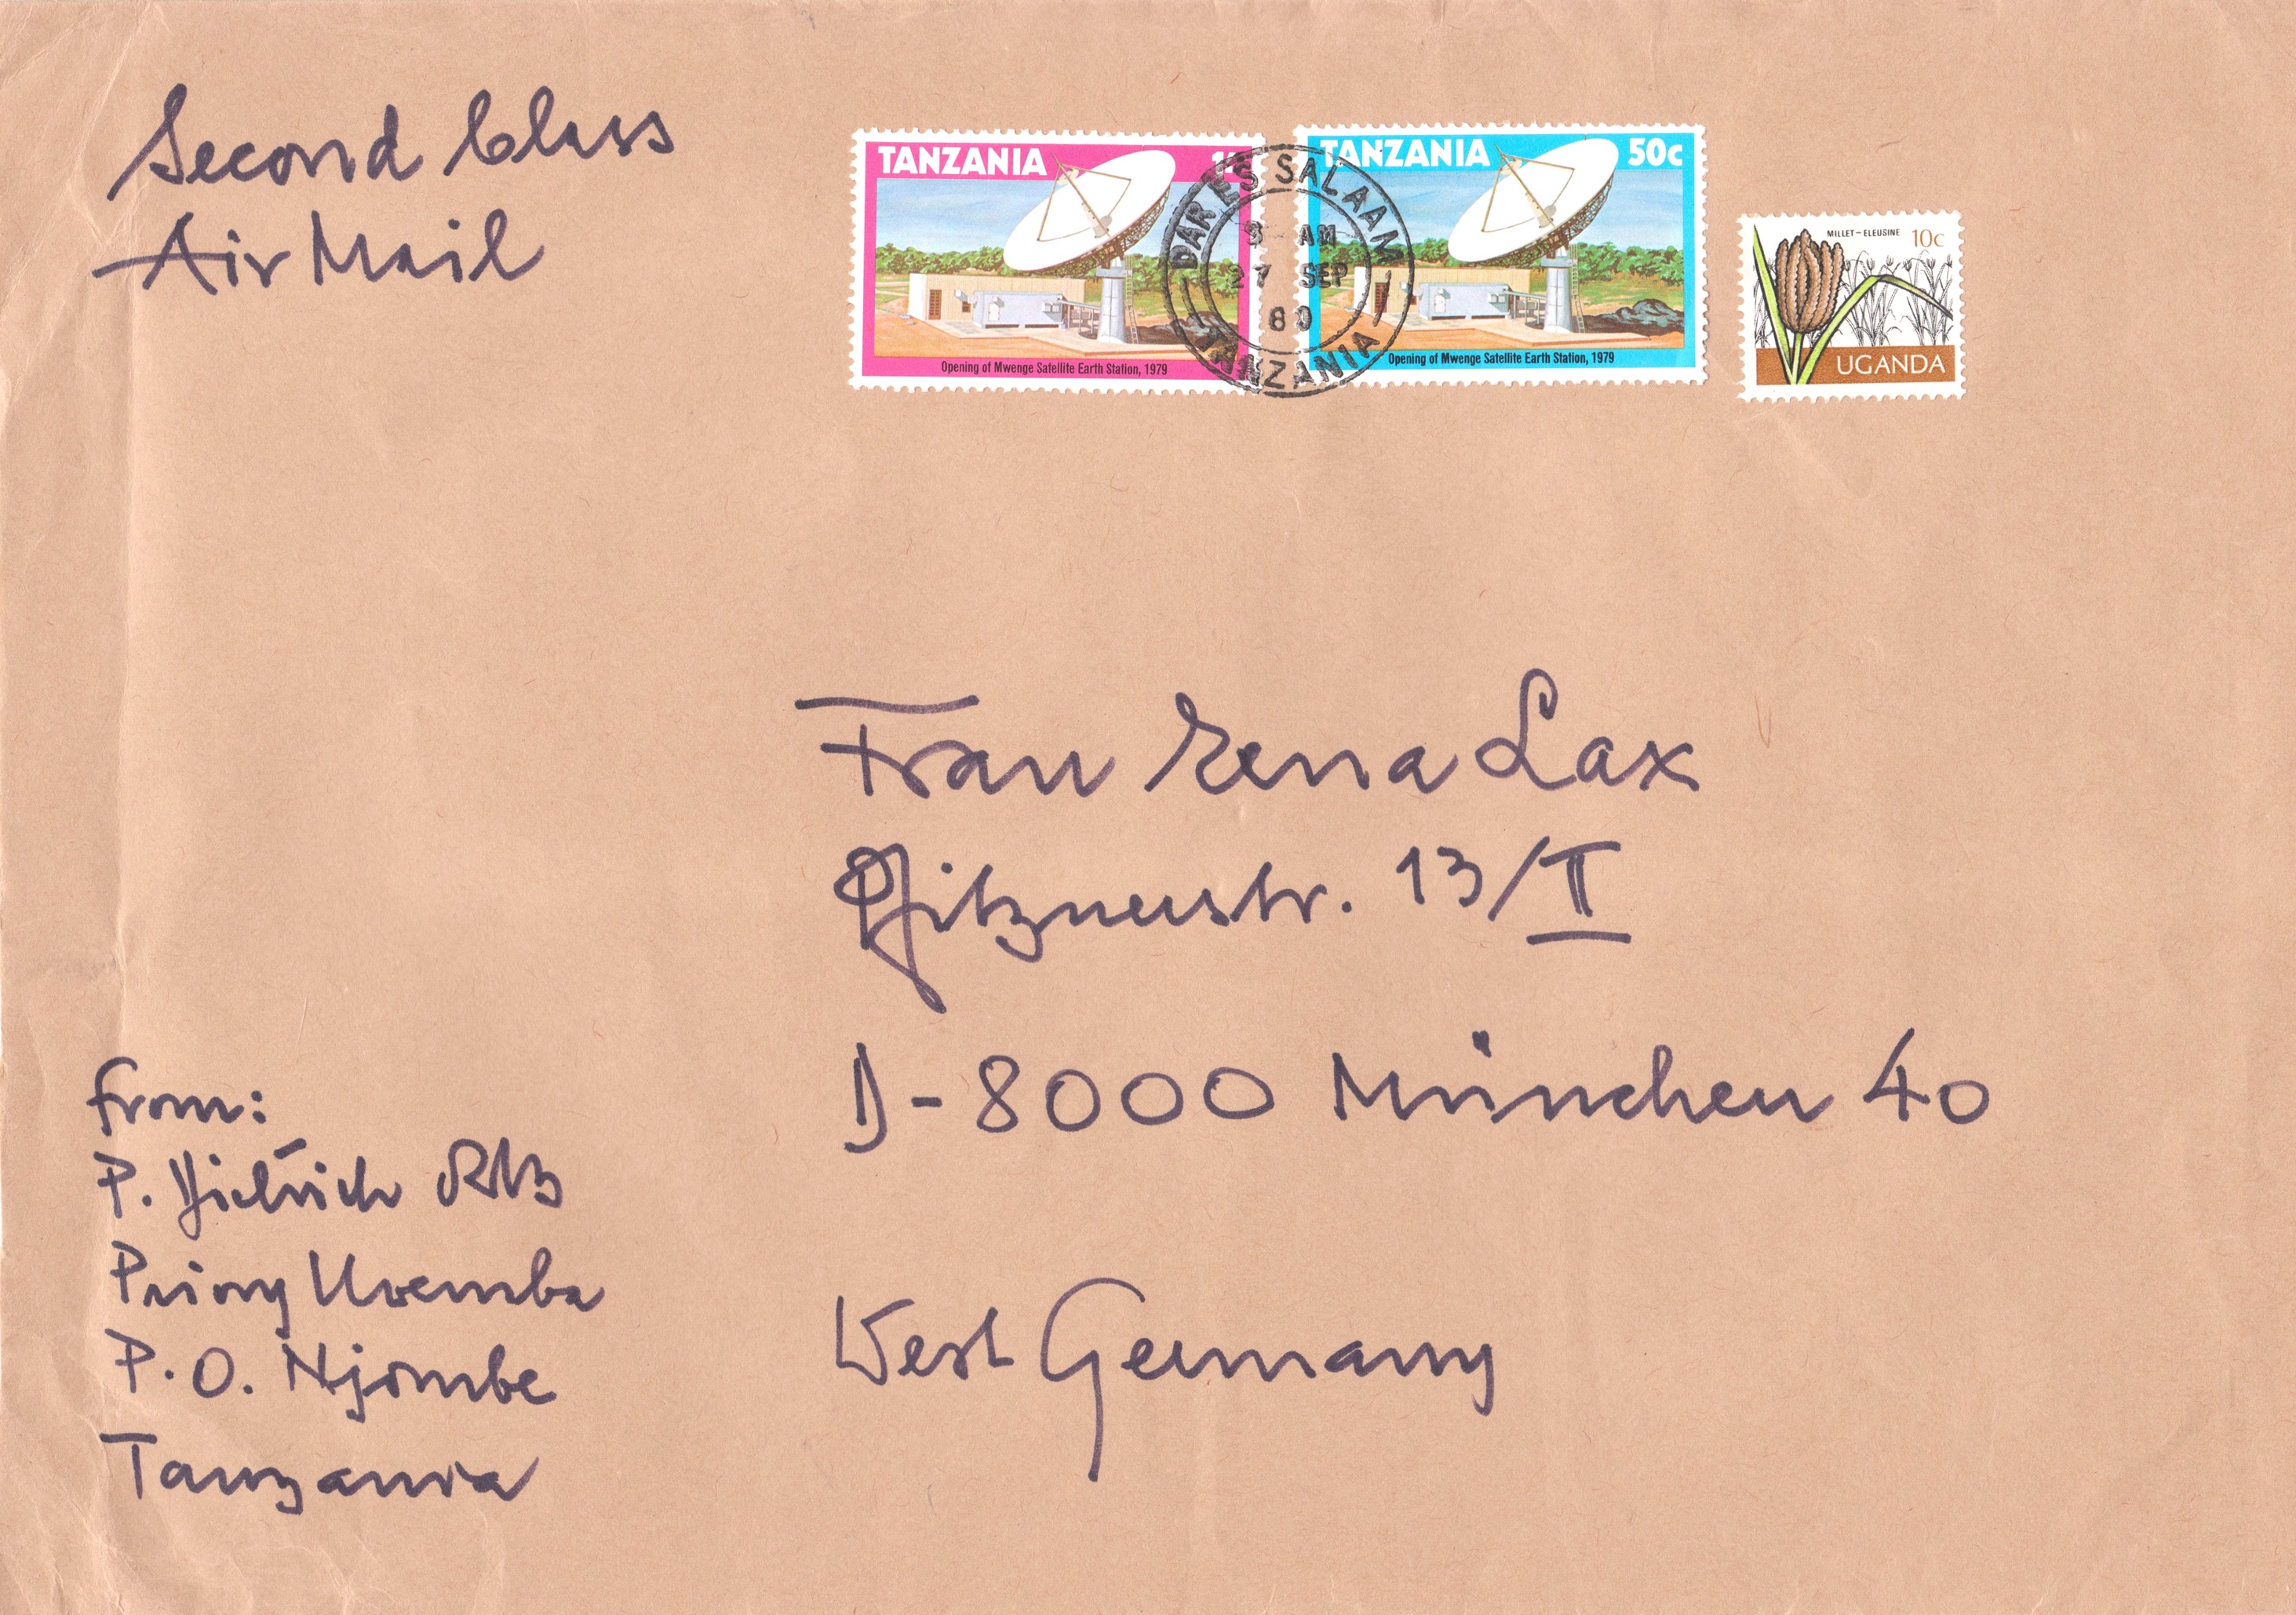 Second Class
Air Mail
TANZANIA
Opening of Mwenge Satellite Earth Station, 1979
TANZANIA 50c
Opening of Mwenge Satellite Earth Station, 1979
DAR ES SALAAM
AM
27 SEP
80
TANZANIA
MILLET-ELEUSINE 10c
UGANDA
Frau Lena Lax
Pfitznerstr. 13/II
D-8000 München 40
West Germany
From:
P. Dietrich
Priory Uwemba
P.O. Njombe
Tanzania